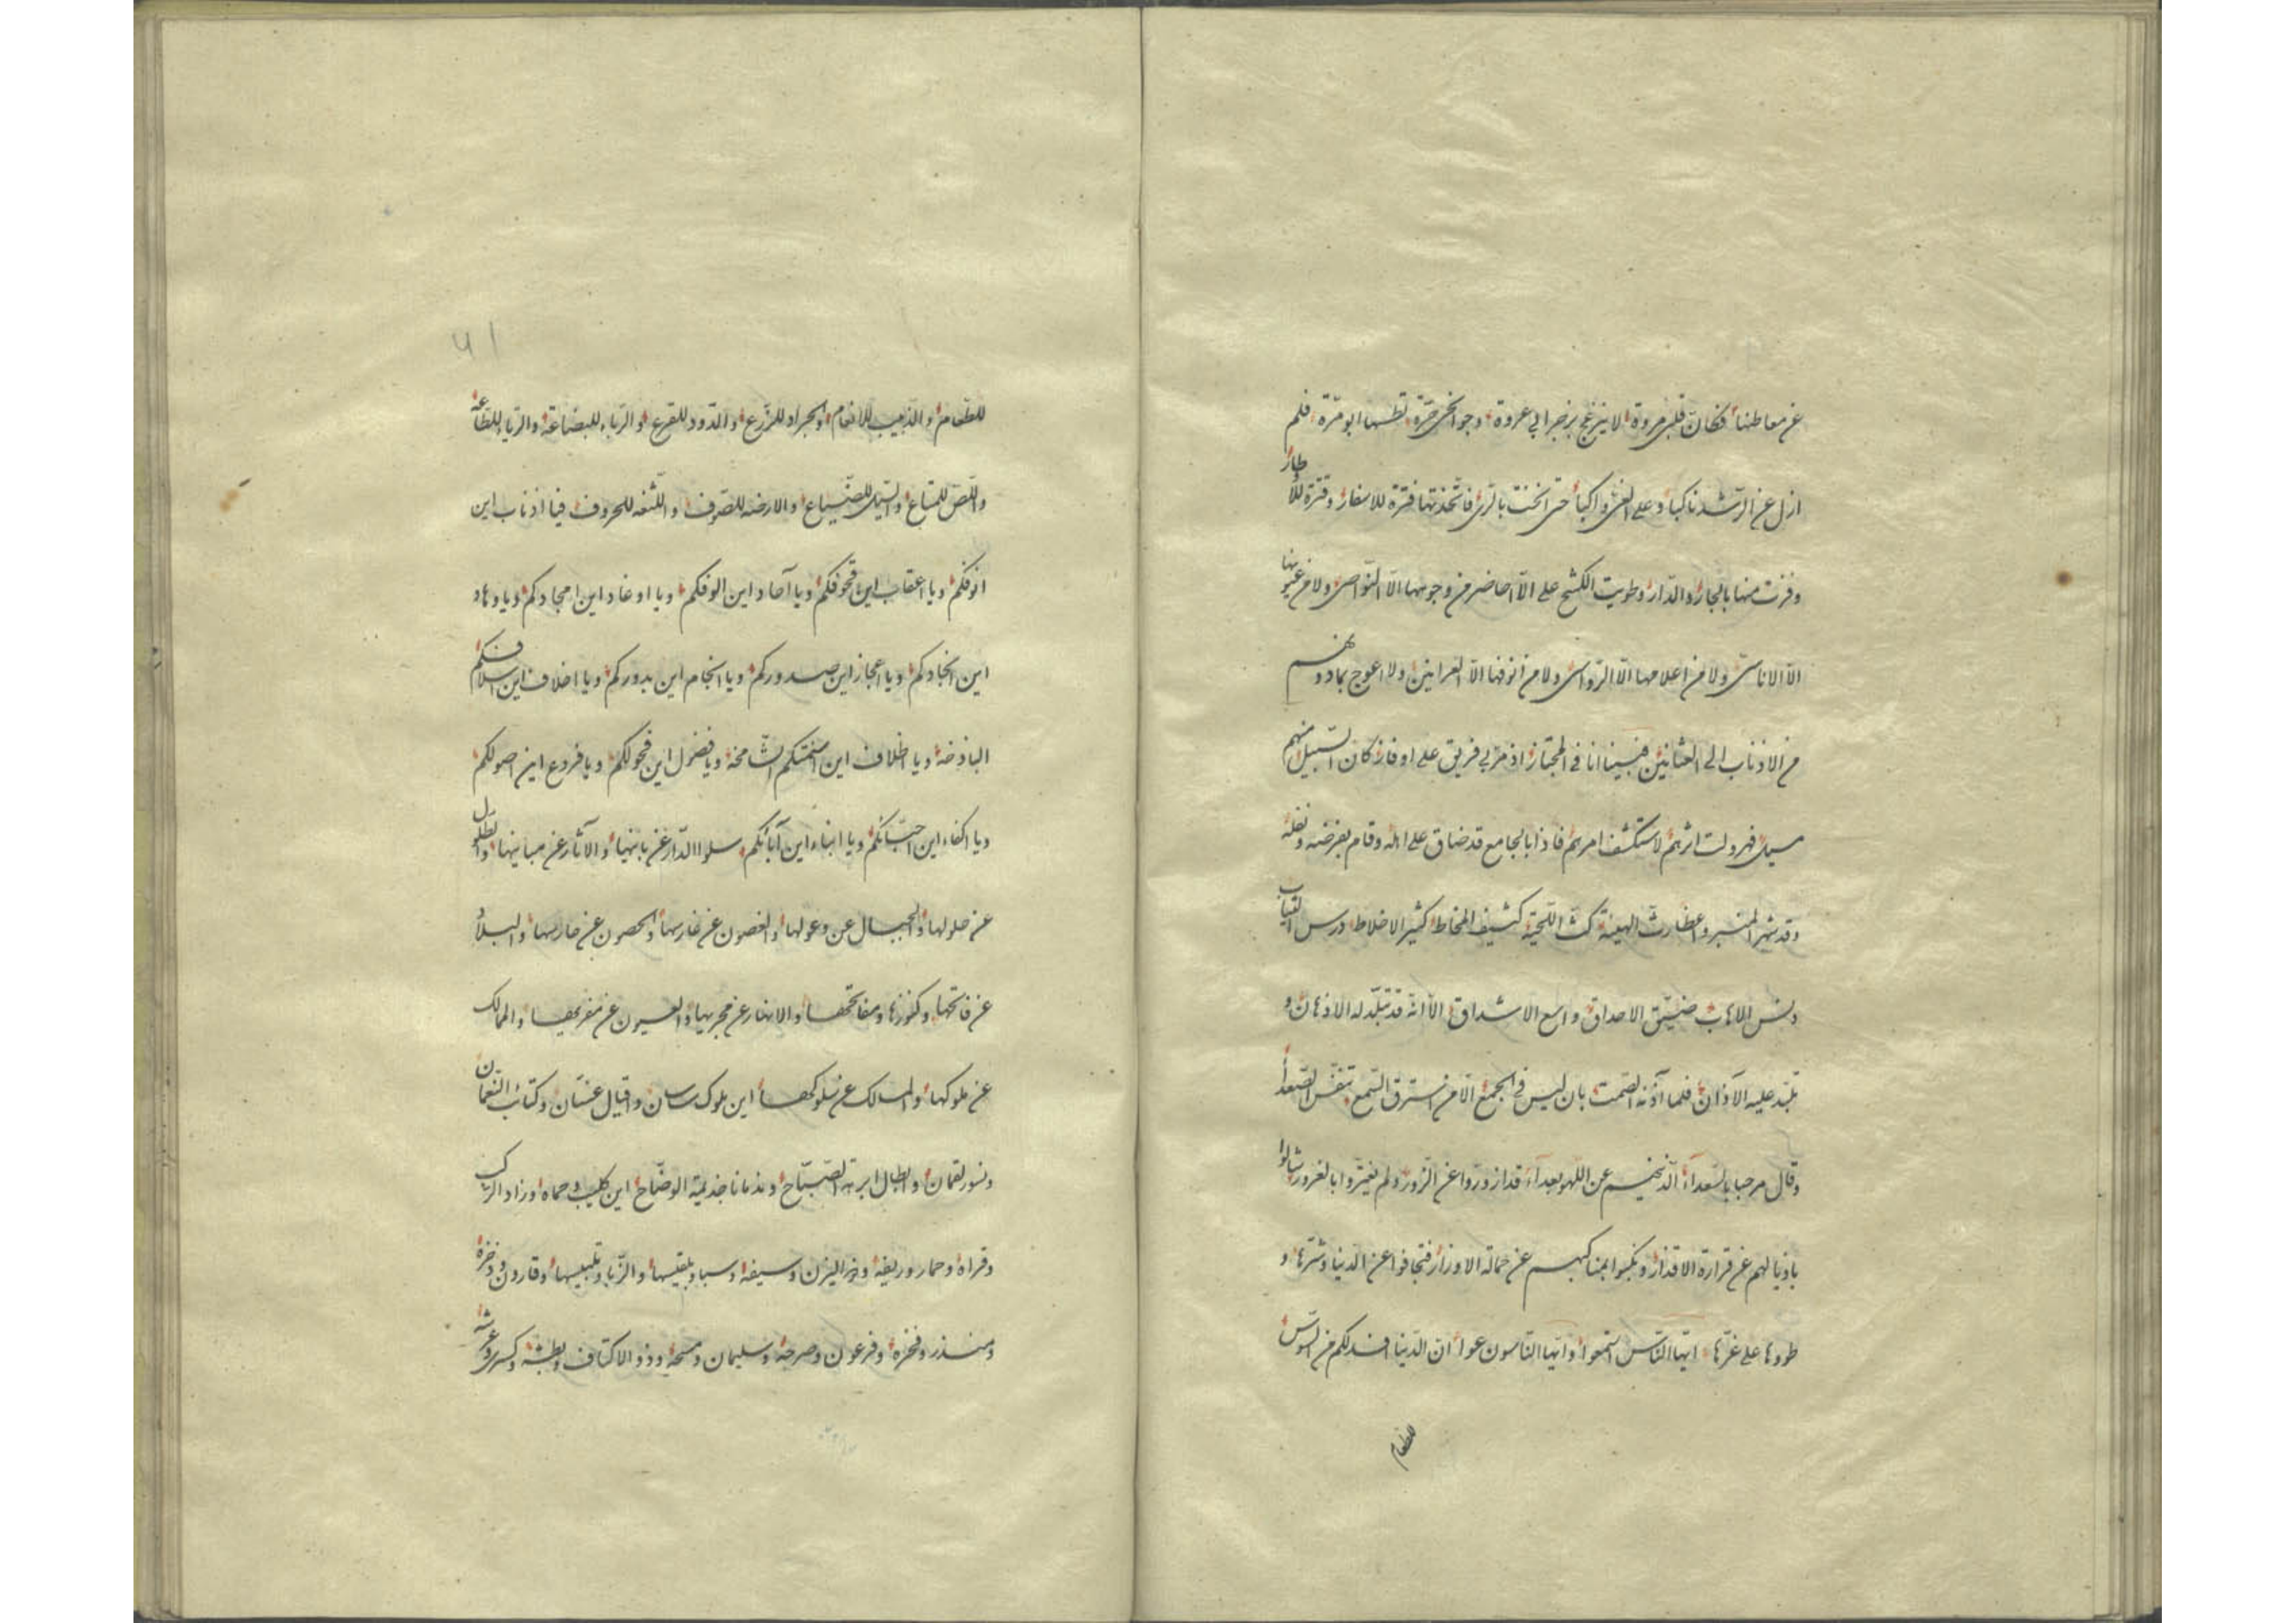 عن معاطنها فكان قلبى مروة لا ينزعج بزجر ابي عروة وجوانحى حرّة تطسها ابو مرّة فلم
ازل عن الرّشد ناكبا وعلى الغىّ واكبا حتى انخت بالرّى فاتّخذتها فترة للاسفار وقترة للأوطار
وفزت منها بالجار والدّار وطويت الكشح على الّا احاضر من وجوهها الّا النّواصى ولا من عيونها
الّا الاناسىّ ولا من اعلامها الّا الرّواسى ولا من انوفها الّا العرانين ولا اعوج بما دونهم
من الاذناب الى العثانين فبينا انا فى المجتاز اذ مرّ بى فريق على اوفاز كان السّبيل منهم
مسيل فهرولت اثرهم لاستكشف امرهم فاذا بالجامع قد ضاق على اهله وقام بفرضه ونفله
وقد شهر المنبر واعظ رثّ الهيئة كثّ اللّحية كثيف المخاط كثير الاخلاط درس الثياب
دنس الاهاب ضيّق الاحداق واسع الاشداق الّا انّه قد تبلّد له الاذهان و
تلبّد عليه الآذان فلما آذنه الصّمت بان ليس فى الجمع الّا من استرق السّمع تنفّس الصّعداء
وقال مرحبا بالسّعداء الّذينهم عن اللّهو بعداء قد ازورّوا عن الزّور ولم يغترّوا بالغرور شالوا
باذيالهم عن قرارة الاقذار ونكبوا بمناكبهم عن حمالة الاوزار فتجافوا عن الدّنيا وشرّها و
طووها على غرّها ايّها النّاس استمعوا وايّها النّاسون عوا انّ الدّنيا افسد لكم من السّوس
للطعام
٤١
للطّعام والذّيب للانعام والجراد للزّرع والدّود للقرع والرّباء للبضاعة والرّياء للطّاعة
واللّصّ للمتاع والسّيل للضّياع والارضه للصّوف واللّثغه للحروف فيا اذناب اين
انوفكم ويا اعقاب اين قحوفكم ويا آحاد اين الوفكم ويا اوغاد اين امجادكم ويا وهاد
اين انجادكم ويا اعجاز اين صدوركم ويا انجام اين بدوركم ويا اخلاف اين اسلافكم
الباذخة ويا اظلاف اين اسنمتكم الشّامخة ويا فضول اين فحولكم ويا فروع اين اصولكم
ويا اكفاء اين احبّائكم ويا ابناء اين آبائكم سلوا الدّار عن بانيها والآثار عن مبانيها والطلول
عن حلولها والجبال عن وعولها والغصون عن غارسها والحصون عن حارسها والبلاد
عن فاتحها وكنوزها ومفاتحها والانهار عن مجريها والعيون عن مفريها والممالك
عن ملوكها والمسالك عن سلوكها اين ملوك ساسان واقيال غسّان وكتائب النّعمان
ونسور لقمان وابطال ابرهة الصّباح وندمانا جذيمة الوضّاح اين كليب وحماه وزاد الرّكب
وقراه وحمار وريعه وذو اليزن وسيفه وسبا وبلقيسها والزّبا وتلبيسها وقارون وذخره
ومنذر وفخره وفرعون وصرحه وسليمان ومسحه وذو الاكتاف وبطشه وكسرى وعرشه